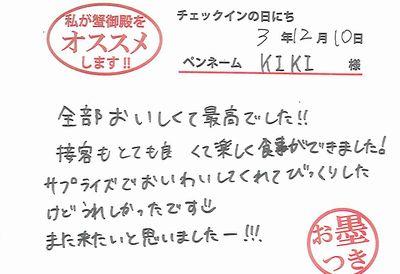 私が蟹御殿を
オススメ
します!!
チェックインの日にち
3年12月10日
ペンネーム KIKI 様
全部おいしくて最高でした!!
接客もとても良 くて楽しく食事ができました!
サプライズでおいわいしてくれてびっくりした
けどうれしかったです
また来たいと思いましたー!!!
お墨
つき